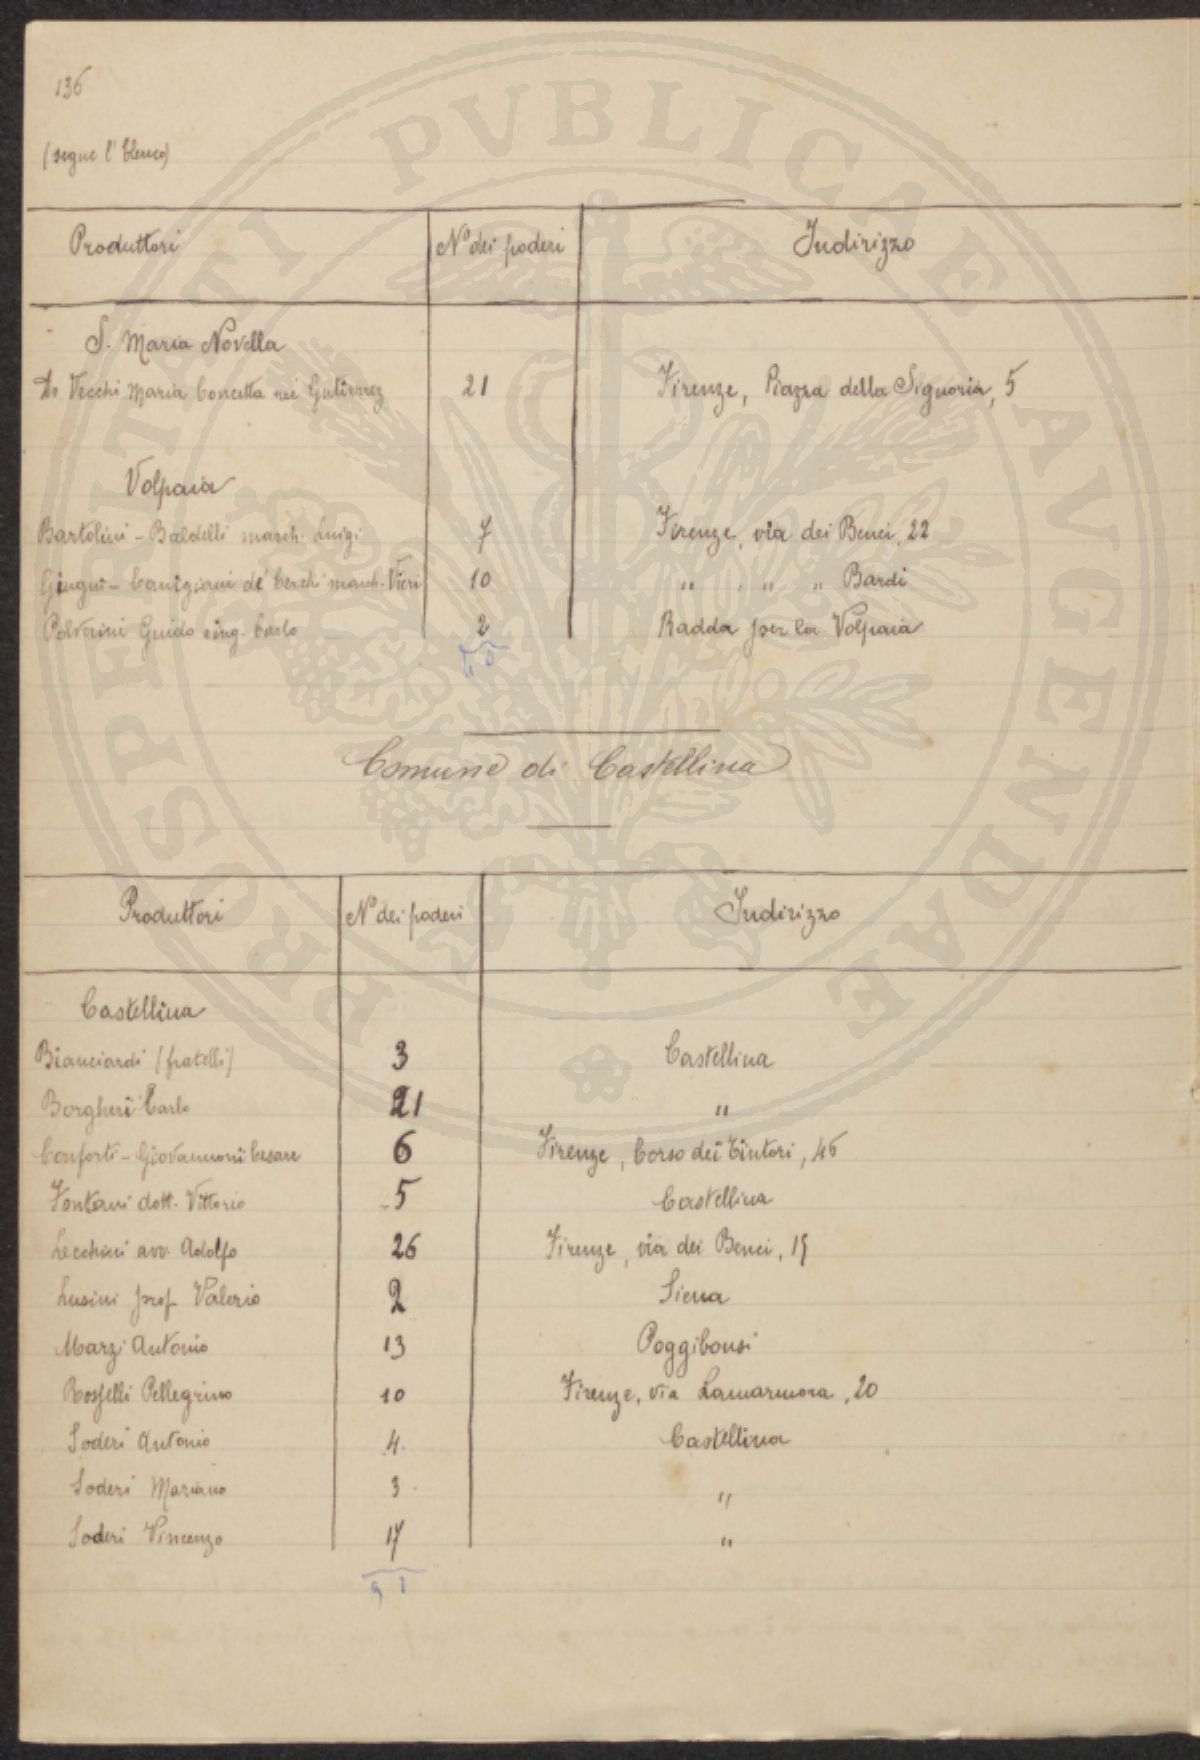 136
(segue l'Elenco)
Produttori N° dei poderi Indirizzo
S. Maria Novella
De Vecchi Maria Concetta nei Gutierrez 21 Firenze, Piazza della Signoria, 5
Volpaia
Bartolini - Baldelli march. Luigi 7 Firenze, via dei Benci, 22
Canigiani de' Cerchi march. Vieri 10 " " " Bardi
Polverini Guido Carlo 2 Radda per la Volpaia
Comune di Castellina
Produttori N° dei poderi Indirizzo
Castellina
Bianciardi (fratelli) 3 Castellina
Borgheri Carlo 21 "
Conforti - Giovannoni Cesare 6 Firenze, Corso dei Tintori, 46
Fontani dott. Vittorio 5 Castellina
Lecchini avv. Adolfo 26 Firenze, via dei Benci, 19
Lusini prof. Valerio 2 Siena
Marzi Antonio 13 Poggibonsi
Rosselli Pellegrino 10 Firenze, via Lamarmora, 20
Soderi Antonio 4. Castellina
Soderi Mariano 3. "
Soderi Vincenzo 17 "
PROSPERITATI PUBLICAE AUGENDAE